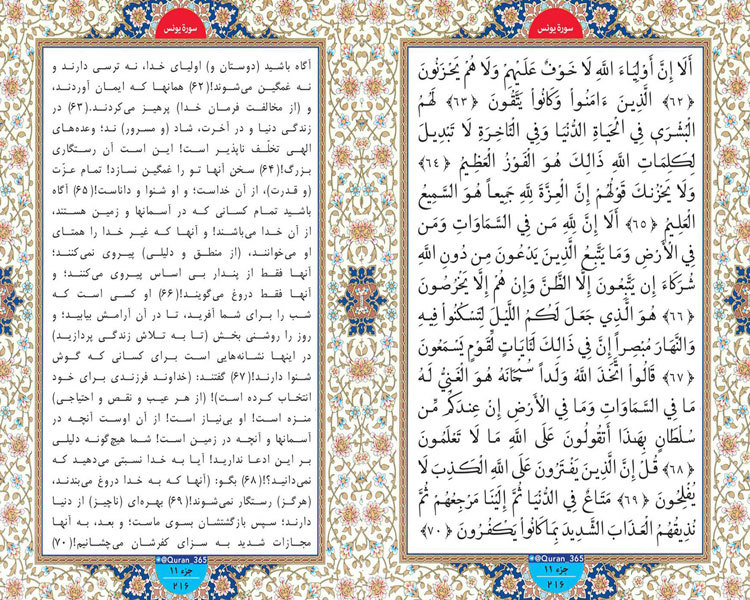 سورة یونس
أَلَا إِنَّ أَوْلِيَاءَ اللَّهِ لَا خَوْفٌ عَلَيْهِمْ وَلَا هُمْ يَحْزَنُونَ
﴿٦٢﴾ الَّذِينَ ءَامَنُوا وَكَانُوا يَتَّقُونَ ﴿٦٣﴾ لَهُمُ
الْبُشْرَى فِي الْحَيَاةِ الدُّنْيَا وَفِي الْآخِرَةِ لَا تَبْدِيلَ
لِكَلِمَاتِ اللَّهِ ذَالِكَ هُوَ الْفَوْزُ الْعَظِيمُ ﴿٦٤﴾
وَلَا يَحْزُنكَ قَوْلُهُمْ إِنَّ الْعِزَّةَ لِلَّهِ جَمِيعاً هُوَ السَّمِيعُ
الْعَلِيمُ ﴿٦٥﴾ أَلَا إِنَّ لِلَّهِ مَن فِي السَّمَاوَاتِ وَمَن
فِي الْأَرْضِ وَمَا يَتَّبِعُ الَّذِينَ يَدْعُونَ مِن دُونِ اللَّهِ
شُرَكَاءَ إِن يَتَّبِعُونَ إِلَّا الظَّنَّ وَإِنْ هُمْ إِلَّا يَخْرُصُونَ
﴿٦٦﴾ هُوَ الَّذِي جَعَلَ لَكُمُ اللَّيْلَ لِتَسْكُنُوا فِيهِ
وَالنَّهَارَ مُبْصِراً إِنَّ فِي ذَالِكَ لَآيَاتٍ لِّقَوْمٍ يَسْمَعُونَ
﴿٦٧﴾ قَالُوا اتَّخَذَ اللَّهُ وَلَداً سُبْحَانَهُ هُوَ الْغَنِيُّ لَهُ
مَا فِي السَّمَاوَاتِ وَمَا فِي الْأَرْضِ إِنْ عِندَكُم مِّن
سُلْطَانٍ بِهَذَا أَتَقُولُونَ عَلَى اللَّهِ مَا لَا تَعْلَمُونَ
﴿٦٨﴾ قُلْ إِنَّ الَّذِينَ يَفْتَرُونَ عَلَى اللَّهِ الْكَذِبَ لَا
يُفْلِحُونَ ﴿٦٩﴾ مَتَاعٌ فِي الدُّنْيَا ثُمَّ إِلَيْنَا مَرْجِعُهُمْ ثُمَّ
نُذِيقُهُمُ الْعَذَابَ الشَّدِيدَ بِمَا كَانُوا يَكْفُرُونَ ﴿٧٠﴾
@Quran_365
جزء ۱۱
۲۱۶
سورة یونس
آگاه باشید (دوستان و) اولیای خدا، نه ترسی دارند و
نه غمگین می‌شوند!(۶۲) همانها که ایمان آوردند،
و (از مخالفت فرمان خدا) پرهیز می‌کردند.(۶۳) در
زندگی دنیا و در آخرت، شاد (و مسرور) ند؛ وعده‌های
الهی تخلّف ناپذیر است! این است آن رستگاری
بزرگ!(۶۴) سخن آنها تو را غمگین نسازد! تمام عزّت
(و قدرت)، از آن خداست؛ و او شنوا و داناست!(۶۵) آگاه
باشید تمام کسانی که در آسمانها و زمین هستند،
از آن خدا می‌باشند! و آنها که غیر خدا را همتای
او می‌خوانند، (از منطق و دلیلی) پیروی نمی‌کنند؛
آنها فقط از پندار بی اساس پیروی می‌کنند؛ و
آنها فقط دروغ می‌گویند!(۶۶) او کسی است که
شب را برای شما آفرید، تا در آن آرامش بیابید؛ و
روز را روشنی بخش (تا به تلاش زندگی پردازید)
در اینها نشانه‌هایی است برای کسانی که گوش
شنوا دارند!(۶۷) گفتند: (خداوند فرزندی برای خود
انتخاب کرده است)! (از هر عیب و نقص و احتیاجی)
منزه است! او بی‌نیاز است! از آن اوست آنچه در
آسمانها و آنچه در زمین است! شما هیچ‌گونه دلیلی
بر این ادعا ندارید! آیا به خدا نسبتی می‌دهید که
نمی‌دانید؟!(۶۸) بگو: (آنها که به خدا دروغ می‌بندند،
(هرگز) رستگار نمی‌شوند!(۶۹) بهره‌ای (ناچیز) از دنیا
دارند؛ سپس بازگشتشان بسوی ماست؛ و بعد، به آنها
مجازات شدید به سزای کفرشان می‌چشانیم!(۷۰)
@Quran_365
جزء ۱۱
۲۱۶